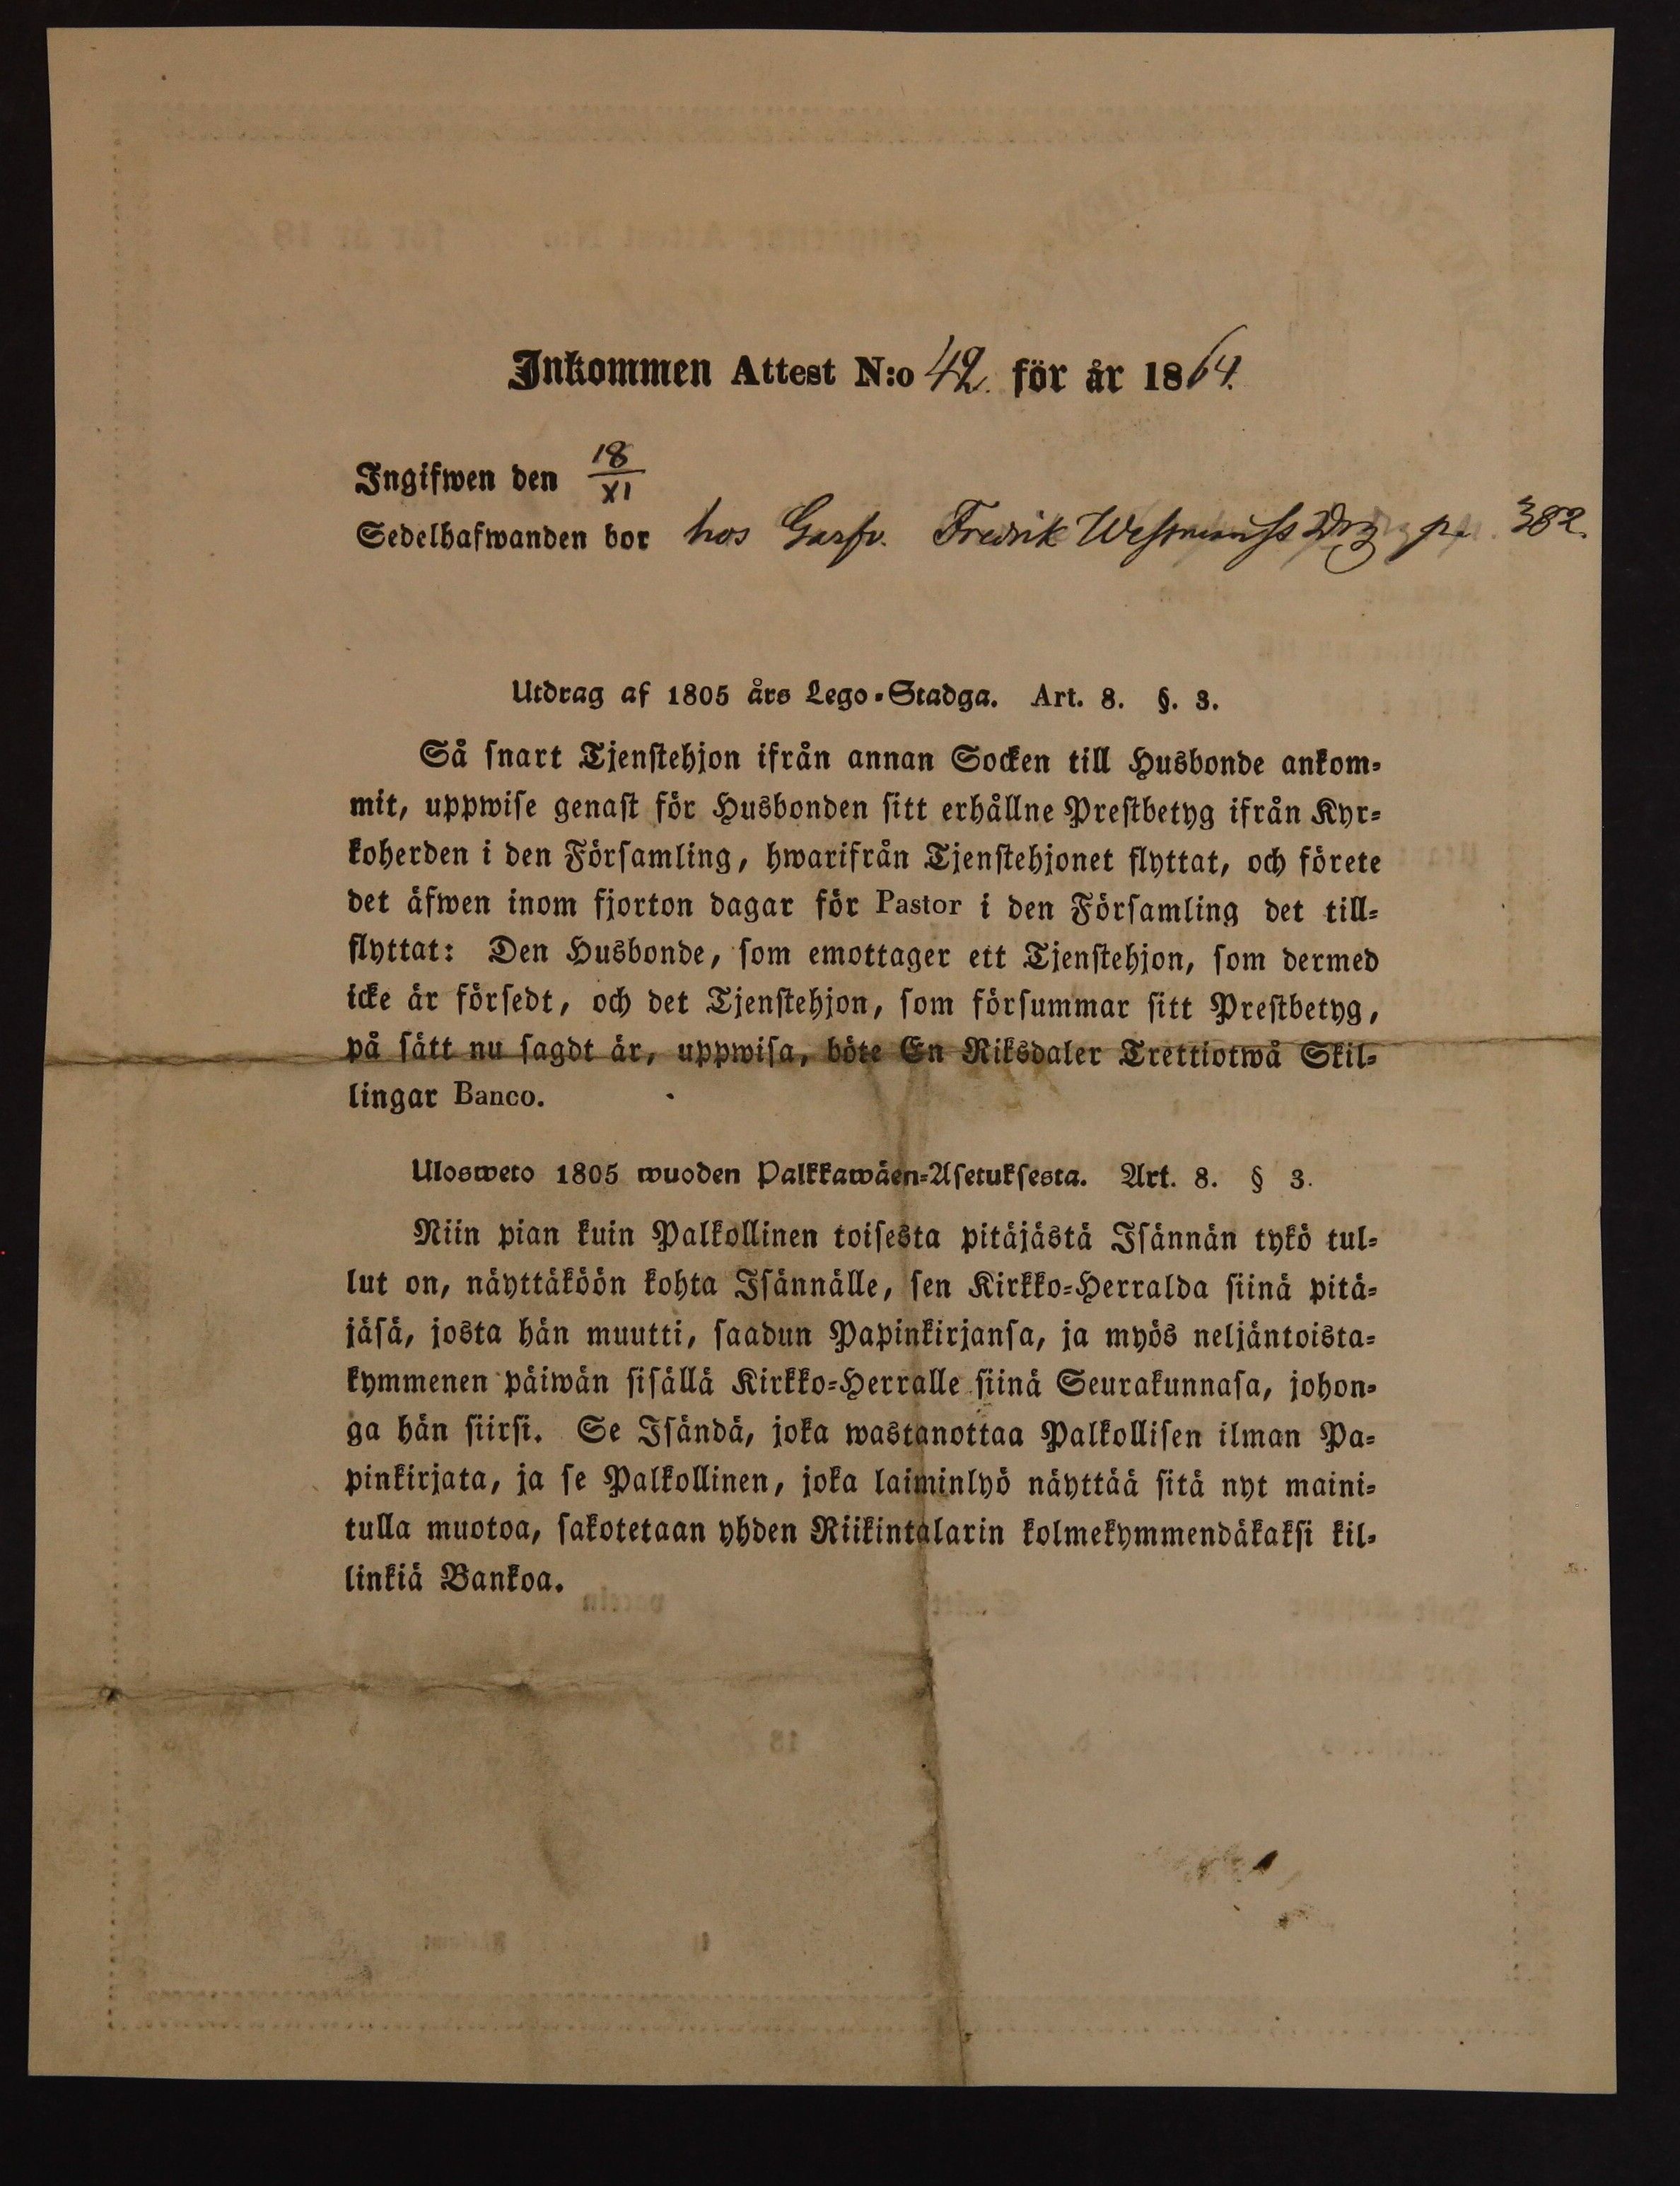 Inkommen Attest N:o 42. för år 1864.
Ingifwen den 18/XI
Sedelhafwanden bor hos Garfv. Fredrik 382.
Utdrag af 1805 års Lego-Stadga. Art. 8. §. 3.
Så snart Tjenstehjon ifrån annan Socken till Husbonde ankom-
mit, uppwise genast för Husbonden sitt erhållne Prestbetyg ifrån Kyr-
koherden i den Församling, hwarifrån Tjenstehjonet flyttat, och förete
det äfwen inom fjorton dagar för Pastor i den Församling det till-
flyttat: Den Husbonde, som emottager ett Tjenstehjon, som dermed
icke är försedt, och det Tjenstehjon, som försummar sitt Prestbetyg,
på sätt nu sagdt är, uppwisa, böte En Riksdaler Trettiotwå Skil-
lingar Banco.
Ulosweto 1805 wuoden Palkkawäen-Asetuksesta. Art. 8. § 3.
Niin pian kuin Palkollinen toisesta pitäjästä Isännän tykö tul-
lut on, näyttäköön kohta Isännälle, sen Kirkko-Herralda siinä pitä-
jäsä, josta hän muutti, saadun Papinkirjansa, ja myös neljäntoista-
kymmenen päiwän sisällä Kirkko-Herralle siinä Seurakunnasa, johon-
ga hän siirsi. Se Isändä, joka wastanottaa Palkollisen ilman Pa-
pinkirjata, ja se Palkollinen, joka laiminlyö näyttää sitä nyt maini-
tulla muotoa, sakotetaan yhden Riikintalarin kolmekymmendäkaksi kil-
linkiä Bankoa.